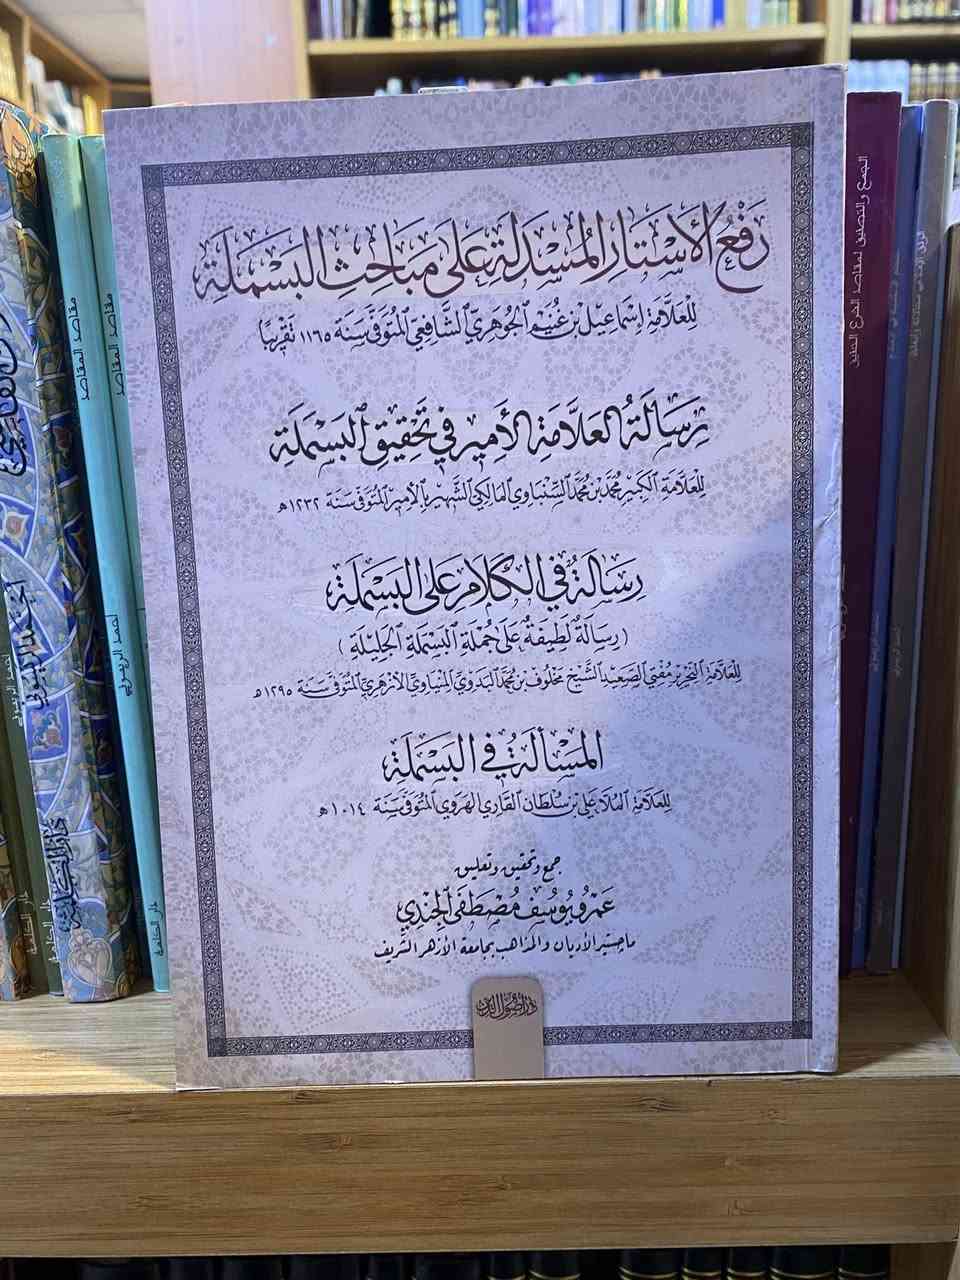 رَفْعُ الأَسْتَارِ المُسْدَلَةِ عَلَى مَبَاحِثِ البَسْمَلَةِ
لِلْعَلَّامَةِ إِسْمَاعِيل بْن غُنَيْم الجَوْهَرِيِّ الشَّافِعِيِّ المُتَوَفَّى سَنَة ١١٦٥ تَقْرِيبًا
رِسَالَةُ العَلَّامَةِ الأَمِيرِ فِي تَحْقِيقِ البَسْمَلَةِ
لِلْعَلَّامَةِ الكَبِيرِ مُحَمَّد بْن مُحَمَّد السُّنْبَاوِي المَالِكِي الشَّهِيرِ بِالأَمِيرِ المُتَوَفَّى سَنَة ١٢٣٢هـ
رِسَالَةٌ فِي الكَلَامِ عَلَى البَسْمَلَةِ
(رِسَالَةٌ لَطِيفَةٌ عَلَى جُمْلَةِ البَسْمَلَةِ الجَلِيلَةِ)
لِلْعَلَّامَةِ النِّحْرِيرِ مُفْتِي الصَّعِيدِ الشَّيْخ مَخْلُوف بْن مُحَمَّد البَدَوِي المِنْيَاوِيِّ الأَزْهَرِيِّ المُتَوَفَّى سَنَة ١٢٩٥هـ
المَسْأَلَةُ فِي البَسْمَلَةِ
لِلْعَلَّامَةِ المُلَّا عَلِي بْن سُلْطَان القَارِي الهَرَوِي المُتَوَفَّى سَنَة ١٠١٤هـ
جمع وتحقيق وتعليق
عَمْرو يُوسُف مُصْطَفَى الجُنْدِي
ماجستير الأديان والمذاهب بجامعة الأزهر الشريف
دار أصول الدين
مقاصد المقاصد
أحمد الريسوني
دار الكلمة
مقاصد المقاصد
أحمد الريسوني
دار الكلمة
أحمد الريسوني
دار الكلمة